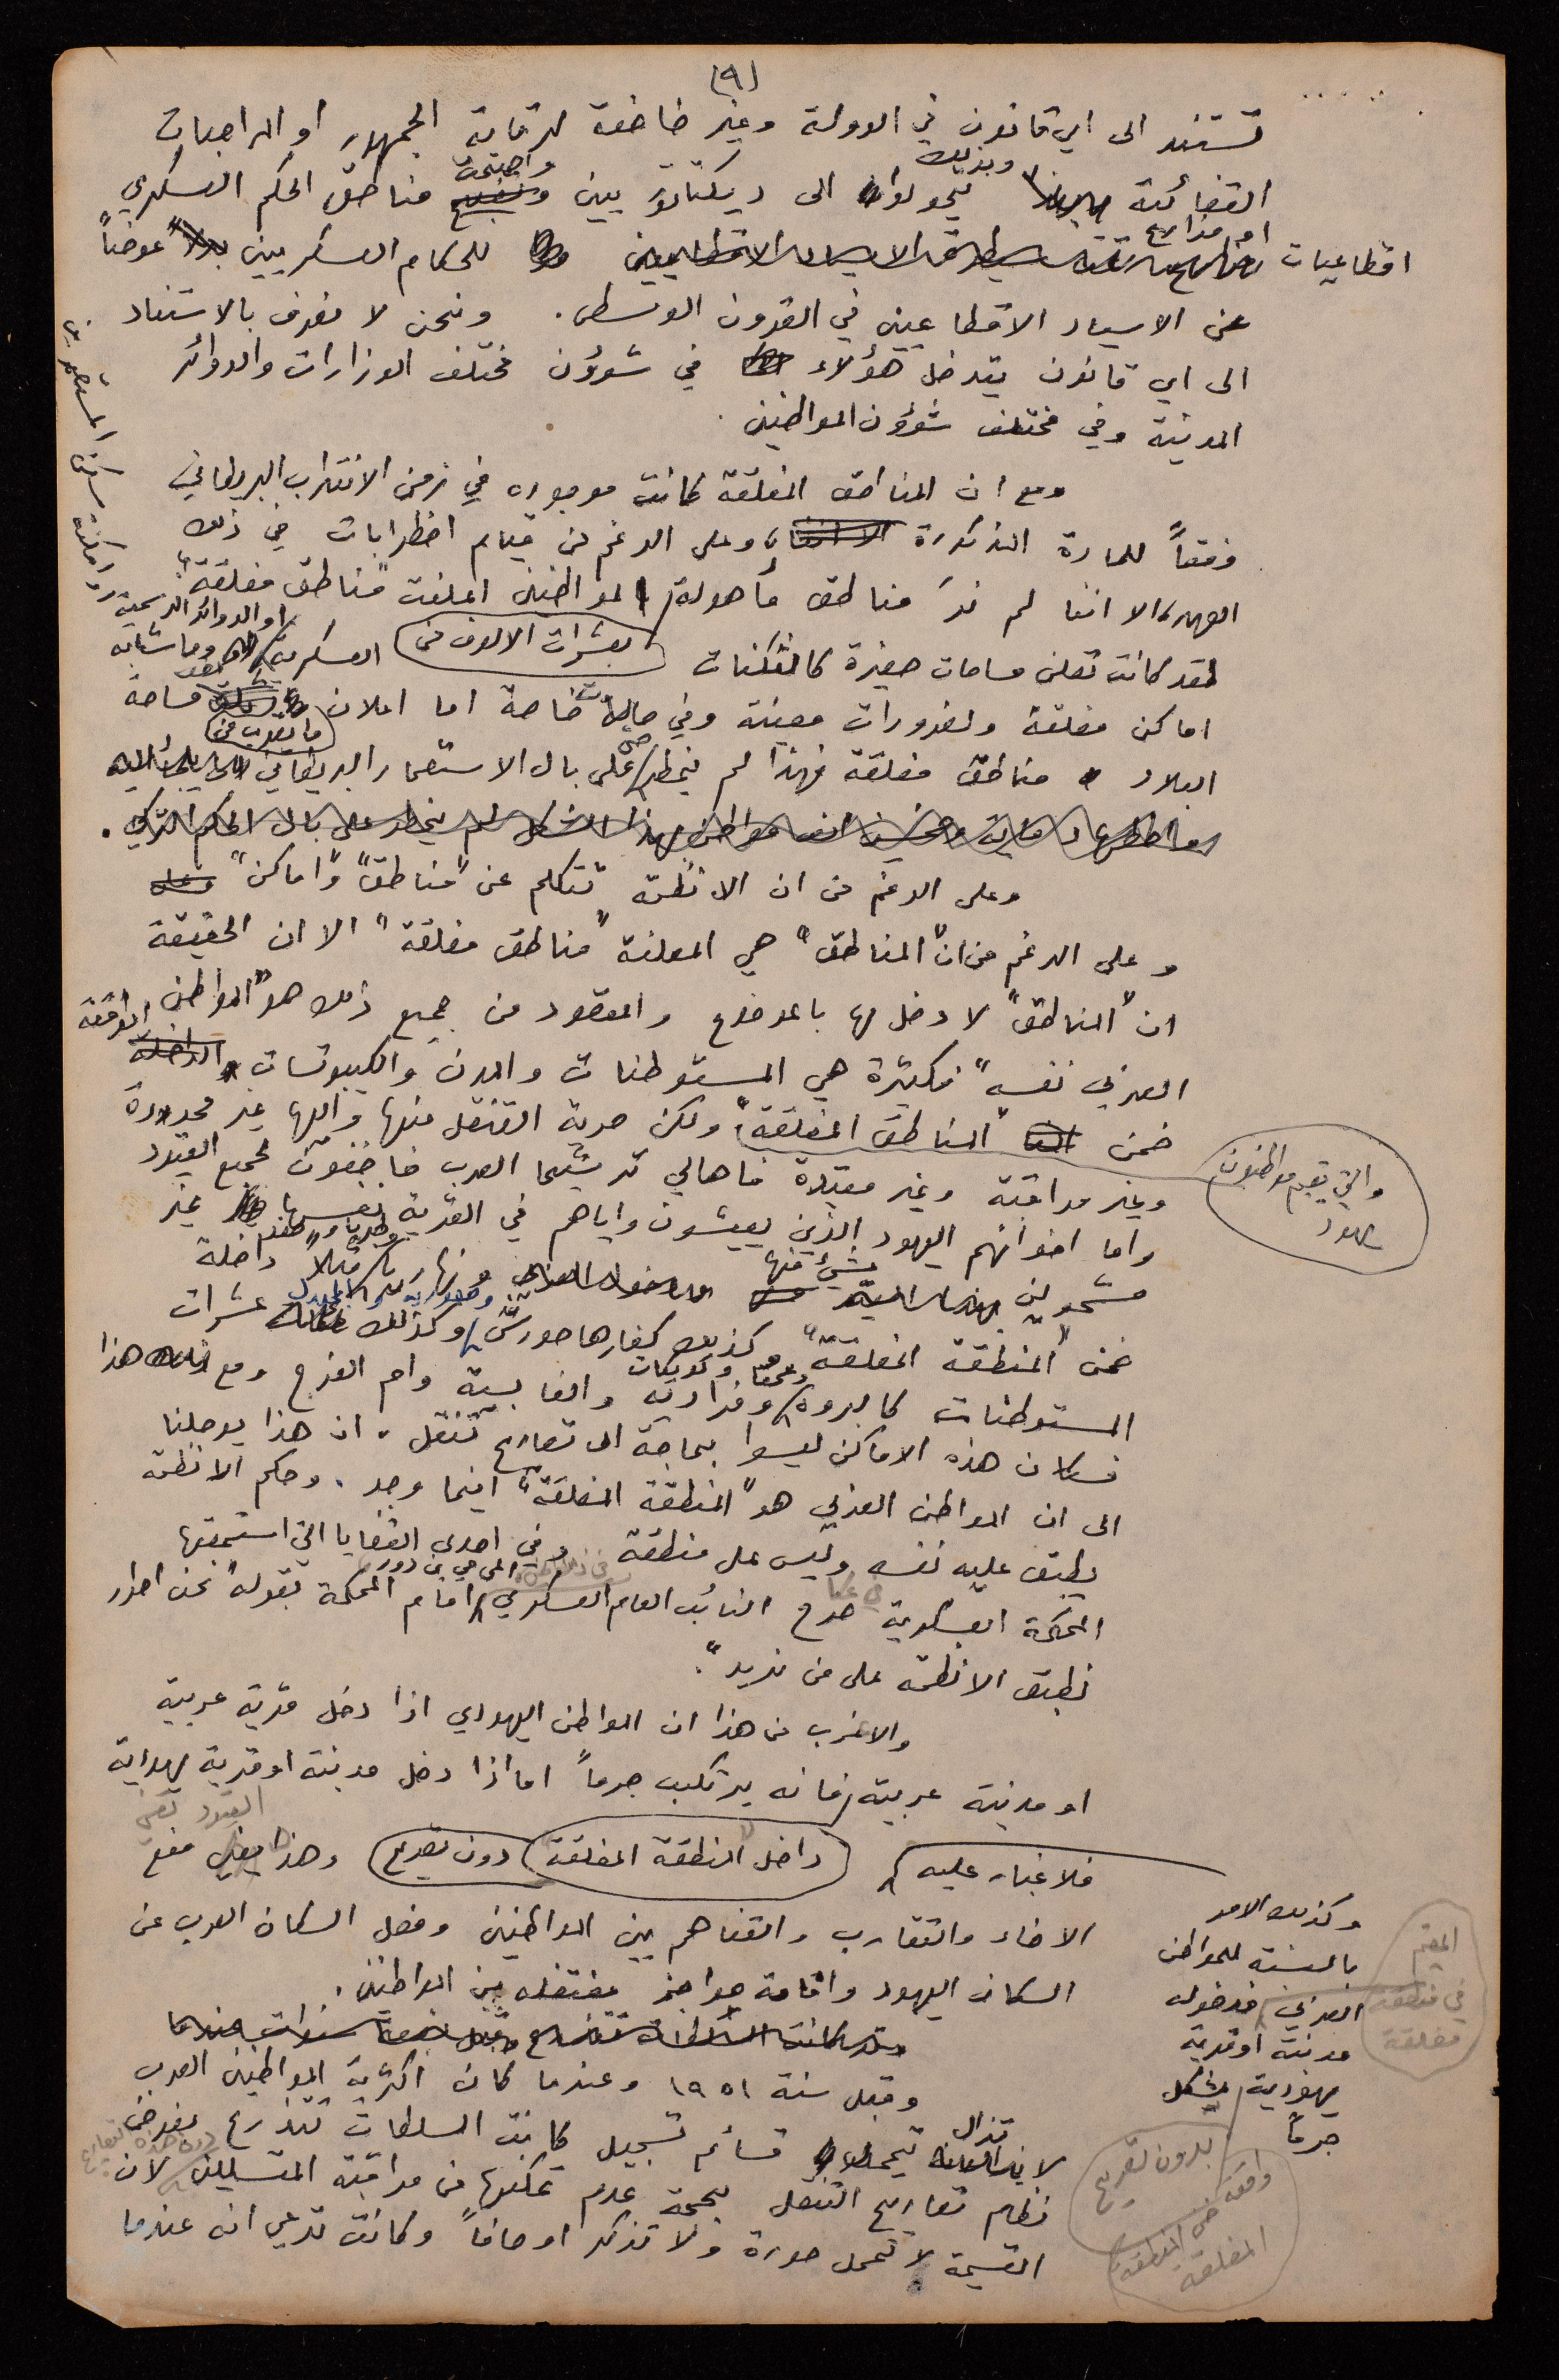 (٩)
تستند الى اي قانون في الدولة وغير خاضعة لرقابة الجمهور او المراجعات
القضائية وبذلك تحولوا الى ديكتاتوريين واصبحت مناطق الحكم العسكري
اقطاعيات او مزارع للحكام العسكريين عوضاً
عن الاسياد الاقطاعيين في القرون الوسطى. ونحن لا نعرف بالاستناد
الى اي قانون يتدخل هؤلاء في شؤون مختلف الوزارات والدوائر
المدنية وفي مختلف شؤون المواطنين.
ومع ان المناطق المغلقة كانت موجوده في زمن الانتداب البريطاني
وفقاً للمادة المذكورة، وعلى الرغم من قيام اضطرابات في ذلك
العهد، الا اننا لم نرَ مناطق مأهولة بعشرات الالوف من المواطنين اعلنت "مناطق مغلقة"
لقد كانت تعلن مساحات صغيرة كالثكنات العسكرية او الدوائر الرسمية وما شابه
اماكن مغلقة ولضرورات معينة وفي حالات خاصة اما اعلان ما يقرب من مساحة
البلاد مناطق مغلقة فهذا لم يخطر حتى على بال الاستعمار البريطاني
وعلى الرغم من ان الانظمة تتكلم عن "مناطق" و"اماكن"
وعلى الرغم من ان "المناطق" هي المعلنة "مناطق مغلقة" الا ان الحقيقة
ان "المناطق" لا دخل لها بالموضوع والمقصود من جميع ذلك هو "المواطن
العربي نفسه" فكثيرة هي المستوطنات والمدن والكيبوتسات الواقعة
ضمن "المناطق المغلقة" والتي يقيم مواطنون يهود ولكن حرية التنقل منها واليها غير محدودة
وغير مراقبة وغير مقيدة فاهالي ترشيحا العرب خاضعون لجميع القيود
واما اخوانهم اليهود الذين يعيشون واياهم في القرية نفسها غير
مشمولين بشيء منها ونهاريا مثلاً داخلة
ضمن "المنطقة المغلقة" كذلك كفار هاحورش وكذلك عشرات
المستوطنات كالبروة وفراديه والغابسية وام الفرج ومع هذا
فسكان هذه الاماكن ليسوا بحاجة الى تصاريح تنقل. ان هذا يوصلنا
الى ان المواطن العربي هو "المنطقة المغلقة" اينما وجد. وحكم الانظمة
يطبق عليه نفسه وليس على منطقة وفي احدى القضايا التي استمعتها
المحكمة العسكرية في عكا صرح النائب العام العسكري امام المحكمة بقوله "نحن احرار
نطبق الانظمة على من نريد".
والاغرب من هذا ان المواطن اليهودي اذا دخل قرية عربية
او مدينة عربية، فانه يرتكب جرماً اما اذا دخل مدينة او قرية يهودية
داخل المنطقة المغلقة دون تصريح فلا غبار عليه
وكذلك الامر
بالنسبة للمواطن
العربي المقيم في منطقة مغلقة فدخوله
مدينة او قرية
يهودية بدون تصريح يشكل
جرماً
واقعة ضمن المنطقة
المغلقة
وهذا القيود تعني منع
الاخاء والتقارب والتفاهم بين المواطنين وفصل السكان العرب عن
السكان اليهود واقامة حواجز مفتعله بين المواطنين.
وقبل سنة ١٩٥١ وعندما كان اكثرية المواطنين العرب
لا تزال تحمل قسائم تسجيل كانت السلطات تتذرع بفرض
نظام تصاريح التنقل بحجة عدم تمكنها من مراقبة المتسللين لان
القسيمة لا تحمل صورة ولا تذكر اوصافاً وكانت تدعي انه عندما